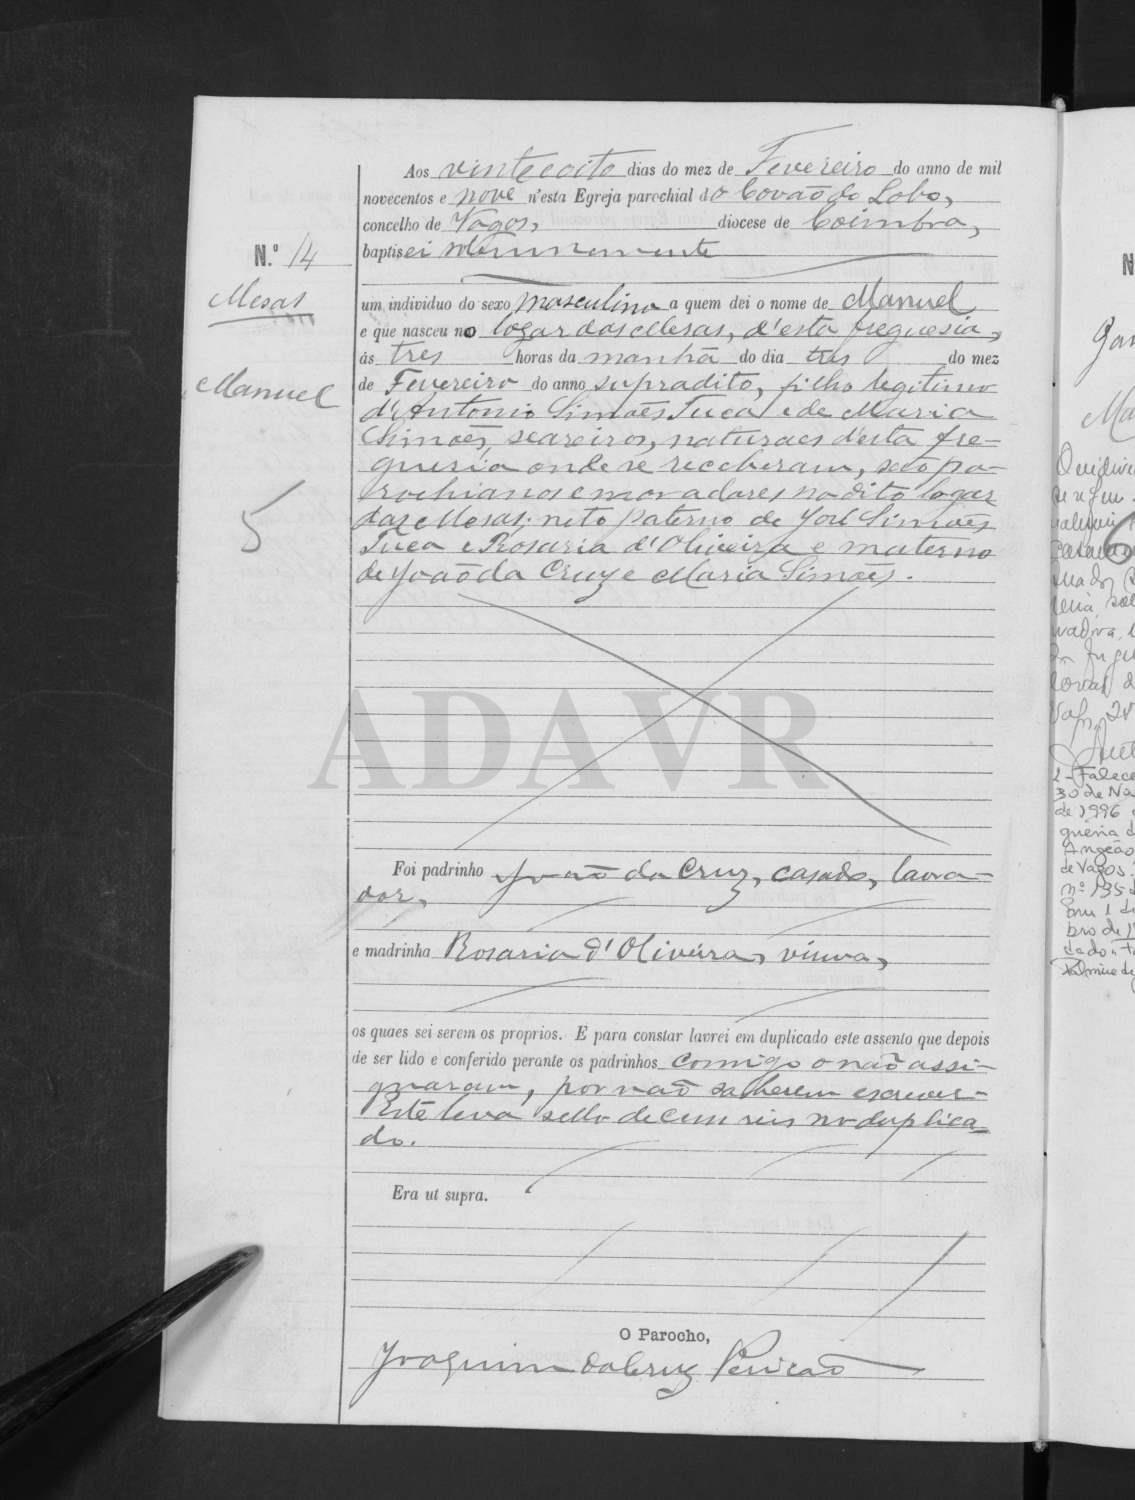 Aos vinte e oito dias do mez de Fevereiro do anno de mil
novecentos e nove n'esta Egreja parochial do Covão do Lobo,
concelho de Vagos, diocese de Coimbra,
baptisei solemnemente
N.º 14
Mesas
Manuel
5
um individuo do sexo masculino a quem dei o nome de Manuel
e que nasceu no logar das Mesas, d'esta freguesia,
ás tres horas da manhã do dia tres do mez
de Fevereiro do anno supradito, filho legitimo
d'Antonio Simões Tuca e de Maria
Simões, seareiros, naturaes d'esta fre-
guesia onde se receberam, são pa-
rochianos e moradores no dito logar
das Mesas; neto paterno de José Simões
Tuca e Rosaria d'Oliveira e materno
de João da Cruz e Maria Simões.
ADAVR
Foi padrinho João da Cruz, casado, lavra-
dor,
e madrinha Rosaria d'Oliveira, viuva,
os quaes sei serem os proprios. E para constar lavrei em duplicado este assento que depois
de ser lido e conferido perante os padrinhos comigo o não assi-
gnaram, por não saberem escrever.
Este leva sello de cem reis no duplica-
do.
Era ut supra.
O Parocho,
Joaquim da Cruz Pericão
N
Ma
30 de No
de 1996
Angeão
de Vagos
nº 135